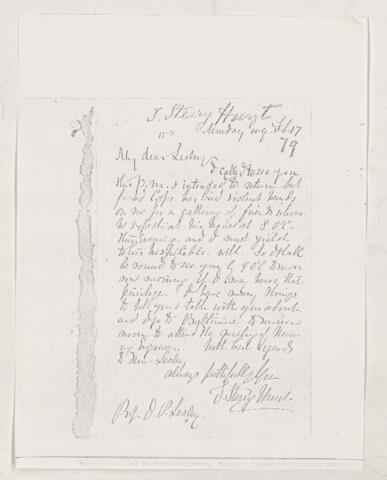 T. Sterry Hunt
Monday
79
My dear Lesley
I called to see you
this p.m. & intended to return but
friend Cope has laid violent hands
on me for a gathering of friends whom
he expects at his house at 8 O'C.
this evening, and I must yield
to his hospitable will. So I shall
be round to see you by 9 O'C tomorrow
morning if I may have that
privilege. I have many things
to tell you & talk with you about
and I go to Baltimore
to attend the meeting of
With best regards
to Mrs. Lesley
always faithfully
T. Sterry Hunt
Prof. J. P. Lesley